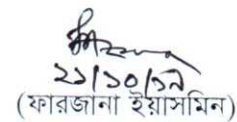 ২১/১০/১৯
(ফারজানা ইয়াসমিন)